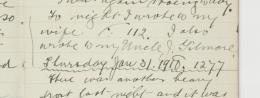 so.
To night I wrote to my
wife C 112. I also
wrote to my Uncle J. Gilmore.
Thursday Jan. 31. 1277
This was another heavy
frost last night and it was